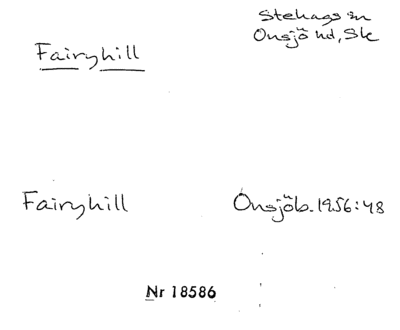 Stehags sn
Fairyhill
Onsjö hd, Sk
Fairyhill
Onsjöb. 1956:48
Nr 18586